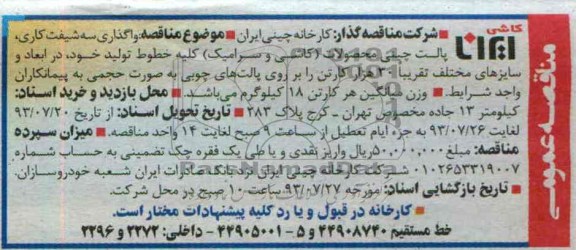 مناقصه عمومی
کاشی
ایرانا
■ شرکت مناقصه گذار: کارخانه چینی ایران ■ موضوع مناقصه: واگذاری سه شیفت کاری،
پالت چینی محصولات (کاشی و سرامیک) کلیه خطوط تولید خود، در ابعاد و
سایزهای مختلف تقریباً ۳۰ هزار کارتن را بر روی پالت‌های چوبی به صورت حجمی به پیمانکاران
واجد شرایط. ■ وزن میانگین هر کارتن ۱۸ کیلوگرم می‌باشد. ■ محل بازدید و خرید اسناد:
کیلومتر ۱۳ جاده مخصوص تهران ـ کرج پلاک ۲۸۳ ■ تاریخ تحویل اسناد: از تاریخ ۹۳/۰۷/۲۰
لغایت ۹۳/۰۷/۲۶ به جزء ایام تعطیل از ساعت ۹ صبح لغایت ۱۴ واحد مناقصه. ■ میزان سپرده
مناقصه: مبلغ ۵۰،۰۰۰،۰۰۰ ریال واریز نقدی و یا طی یک فقره چک تضمینی به حساب شماره
۰۱۰۲۶۵۳۳۱۹۰۰۷ شرکت کارخانه چینی ایران نزد بانک صادرات ایران شعبه خودروسازان.
■ تاریخ بازگشایی اسناد: مورخه ۹۳/۰۷/۲۷ ساعت ۱۰ صبح در محل شرکت.
■ کارخانه در قبول و یا رد کلیه پیشنهادات مختار است.
خط مستقیم ۴۴۹۰۸۷۴۰ و ۵ - ۴۴۹۰۵۰۰۱ - داخلی: ۲۲۷۳ و ۲۲۹۶